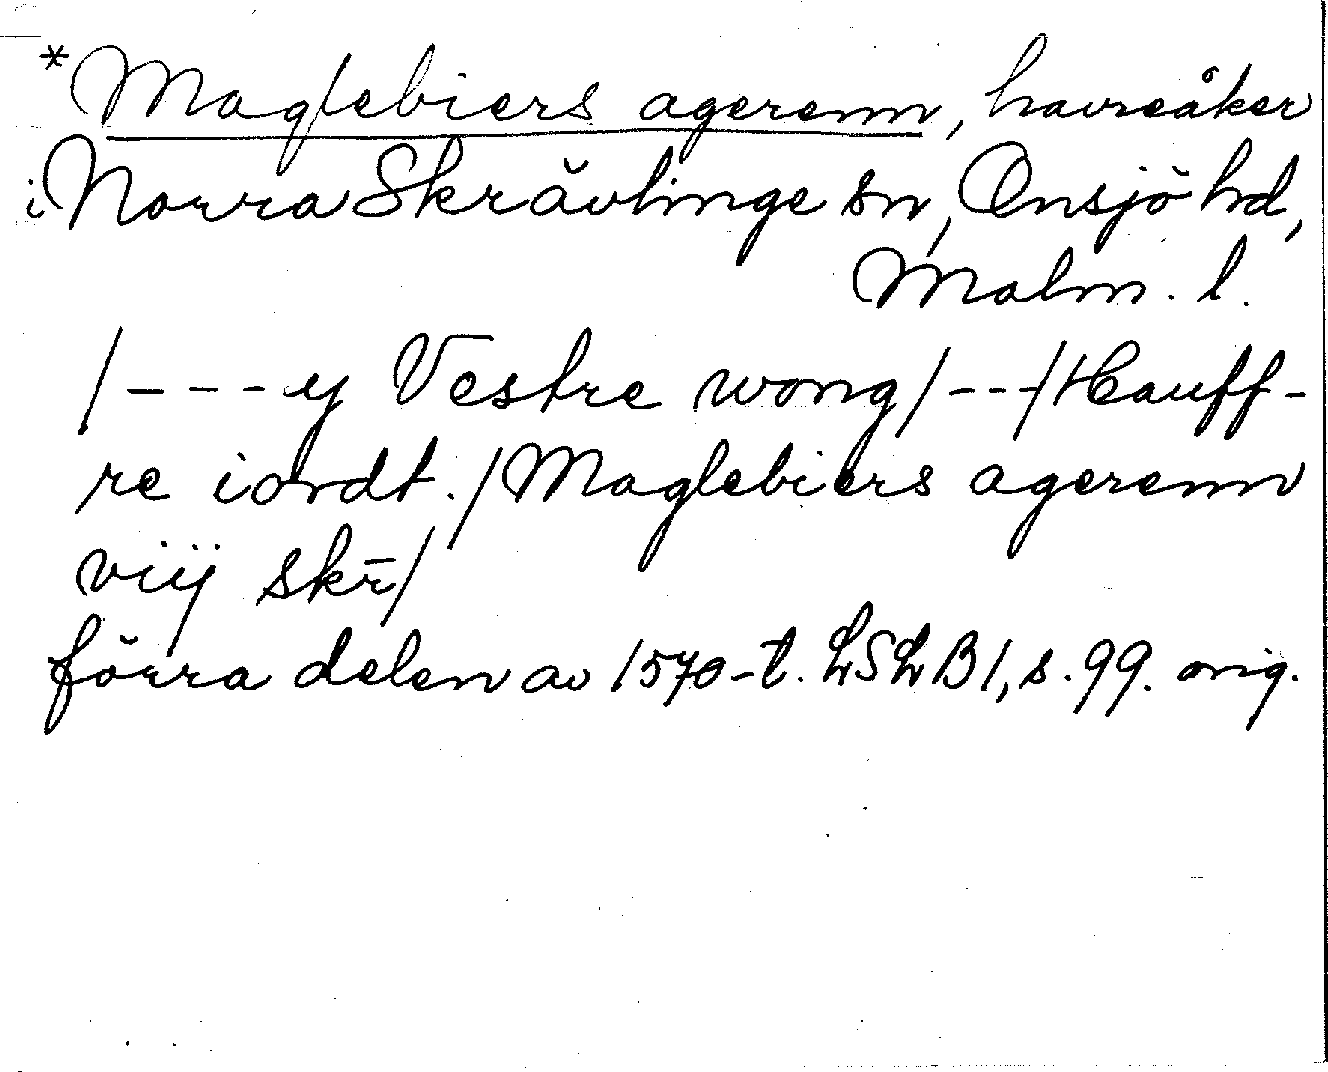 *Maglebiers agerenn, havreåker
i Norra Skrävlinge sn, Onsjö hd,
Malm. l.
/---y Vestre wong/---/Hauff-
re iordt./Maglebiers agerenn
viij skr̄/
förra delen av 1570-t. LSLB1, s. 99. orig.